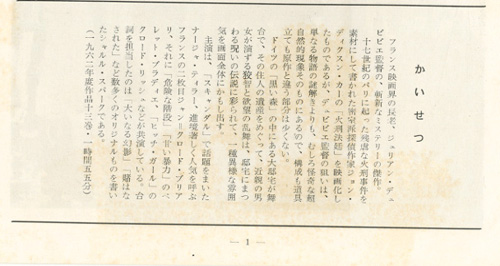 かいせつ
フランス映画界の巨匠、ジュリアン・デュ
ビビエ監督の、斬新なミステリーの傑作
十七世紀のパリに起った残虐な火刑事件を
素材にして書かれた密室派探偵作家ジョン・
ディクスン・カーの「火刑法廷」を映画化し
たものであるが、デュビビエ監督の狙いは、
単なる物語の謎解きよりも、むしろ怪奇な超
自然的現象そのものにあるので、構成も道具
立ても原作と違う部分は少くない。
ドイツの「黒い森」の中にある大邸宅が舞
台で、その住人の遺産をめぐって、近親の男
女が演ずる狡智と欲望の乱舞は、邸宅にまつ
わる呪いの伝説に彩られて、一種異様な雰囲
気を画面全体にかもし出す。
主演は、「スキャンダル」で話題をまいた
ナージャ・ティラー、進境著しく人気を呼ぶ
フランスの二枚目ジャン＝クロード・ブリア
リ、それに「危険な階段」「甘い暴力」のペ
レット・プラディエ、「ミョンナ・ガール」の
クロード・リッシュなどが共演している。台
詞を担当したのは「大いなる幻影」「賭はな
された」など数多くのオリジナルものを書い
たシャルル・スパークである。
（一九六二年度作品十三巻・一時間五五分）
— 1 —